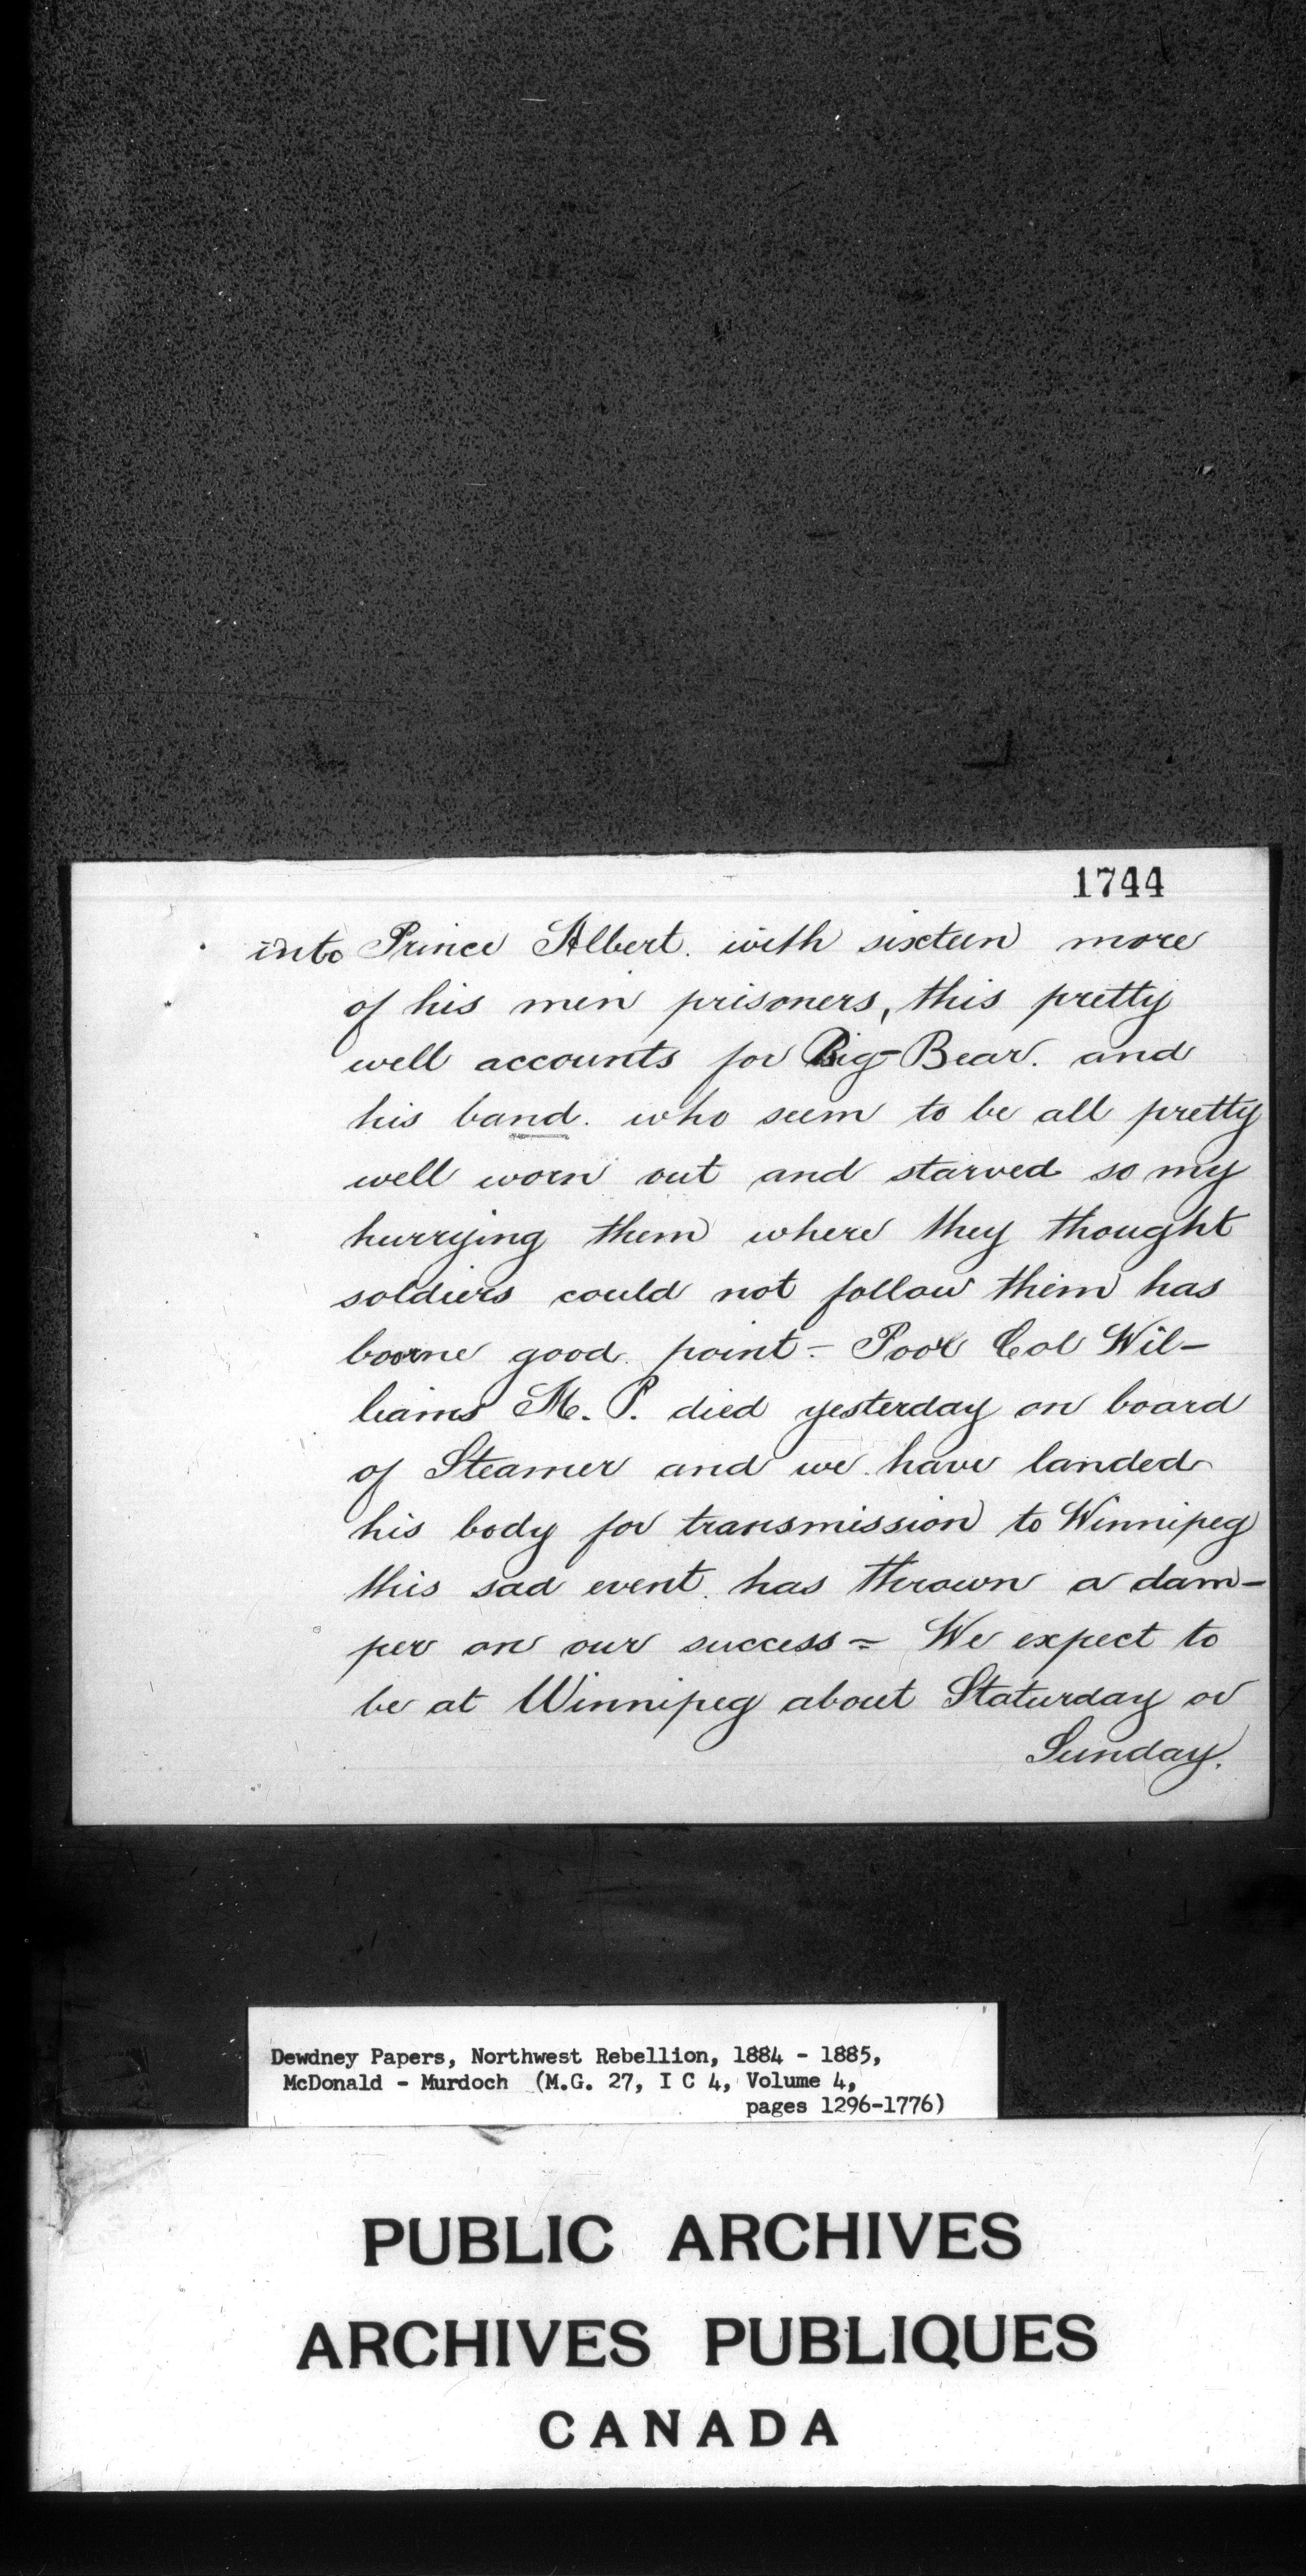 1744
into Prince Albert. with sixteen more
of his men prisoners, this pretty
well accounts for Big-Bear. and
his band. who seem to be all pretty
well worn out and starved so my
hurrying them where they thought
soldiers could not follow them has
boorne good point - Poor Col Wil-
liams M. P. died yesterday on board
of Steamer and we have landed
his body for transmission to Winnipeg
this sad event. has thrown a dam-
per on our success = We expect to
be at Winnipeg about Staturday or
Sunday.
Dewdney Papers, Northwest Rebellion, 1884 - 1885,
McDonald - Murdoch (M.G. 27, I C 4, Volume 4,
pages 1296-1776)
PUBLIC ARCHIVES
ARCHIVES PUBLIQUES
CANADA